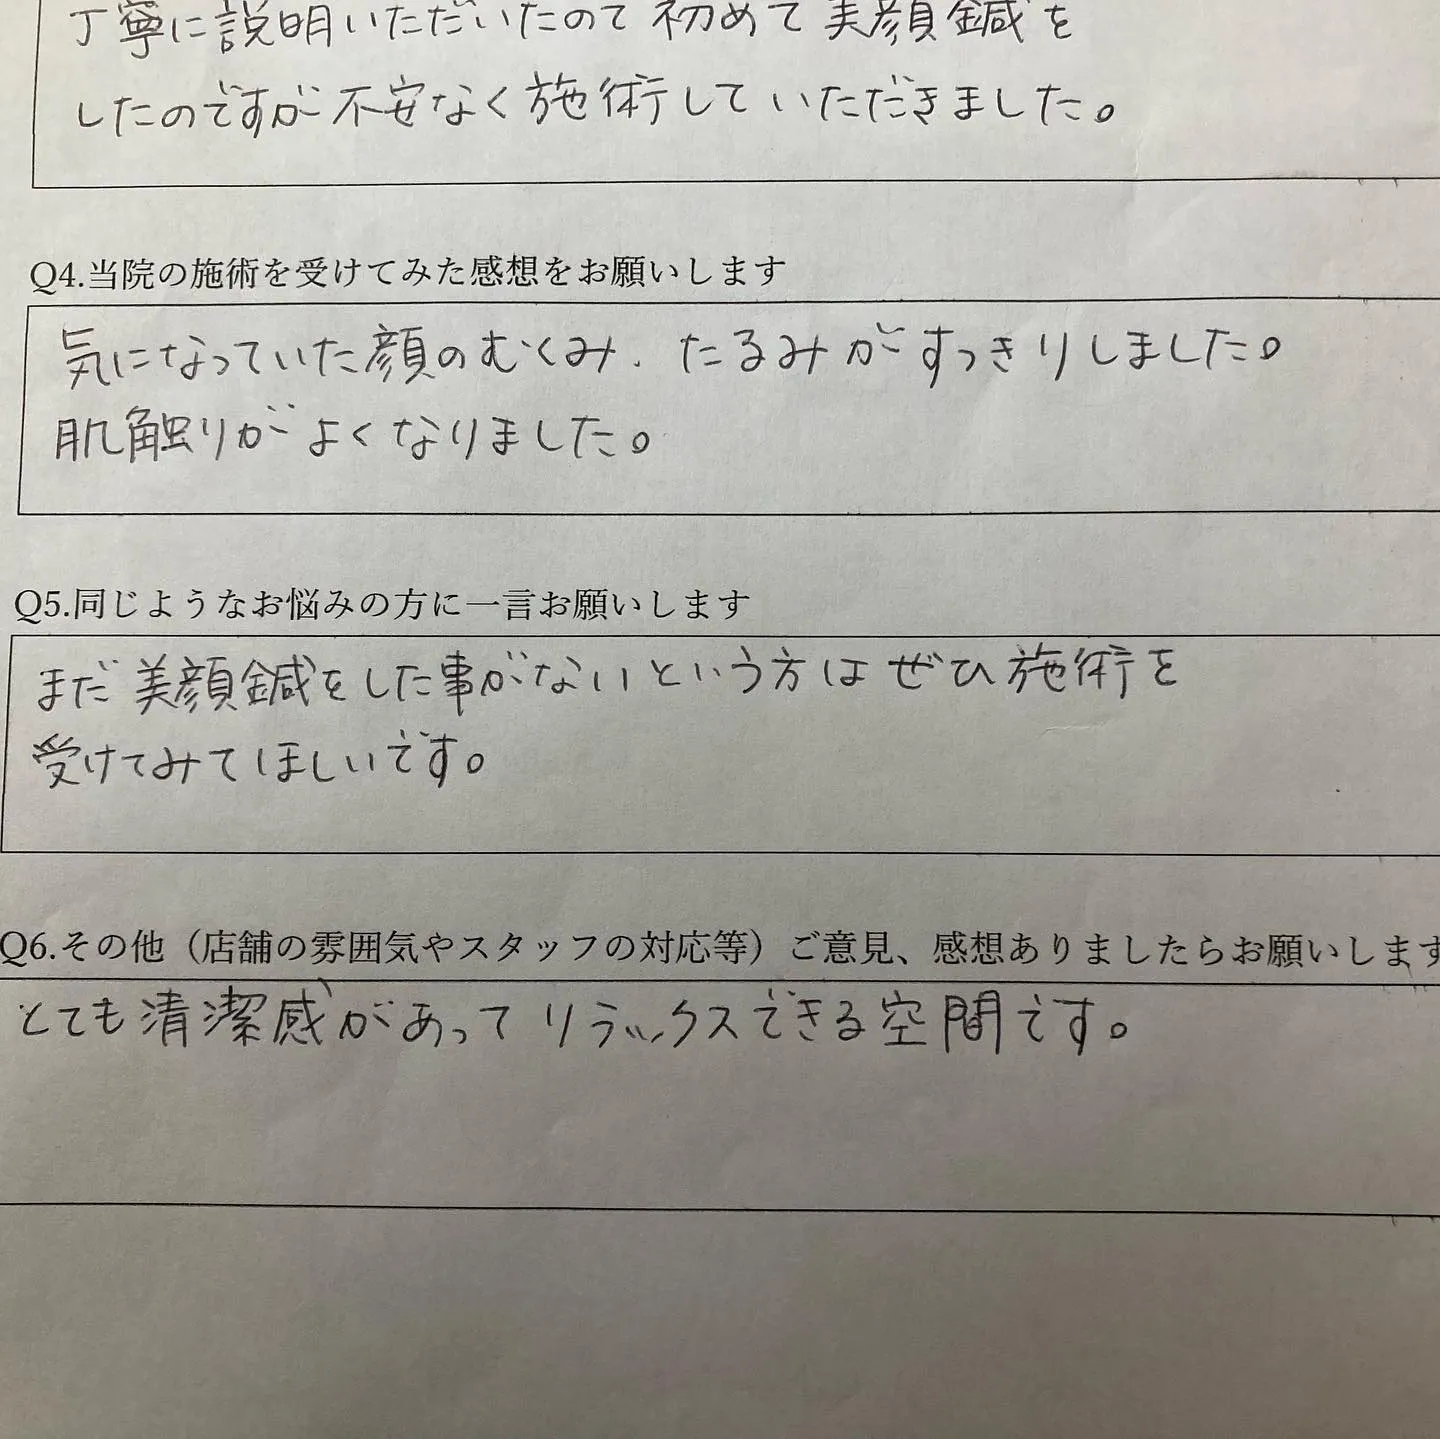 丁寧に説明いただいたので初めて美顔鍼を
したのですが不安なく施術していただきました。
Q4.当院の施術を受けてみた感想をお願いします
気になっていた顔のむくみ、たるみがすっきりしました。
肌触りがよくなりました。
Q5.同じようなお悩みの方に一言お願いします
まだ美顔鍼をした事がないという方はぜひ施術を
受けてみてほしいです。
Q6.その他（店舗の雰囲気やスタッフの対応等）ご意見、感想ありましたらお願いします
とても清潔感があってリラックスできる空間です。